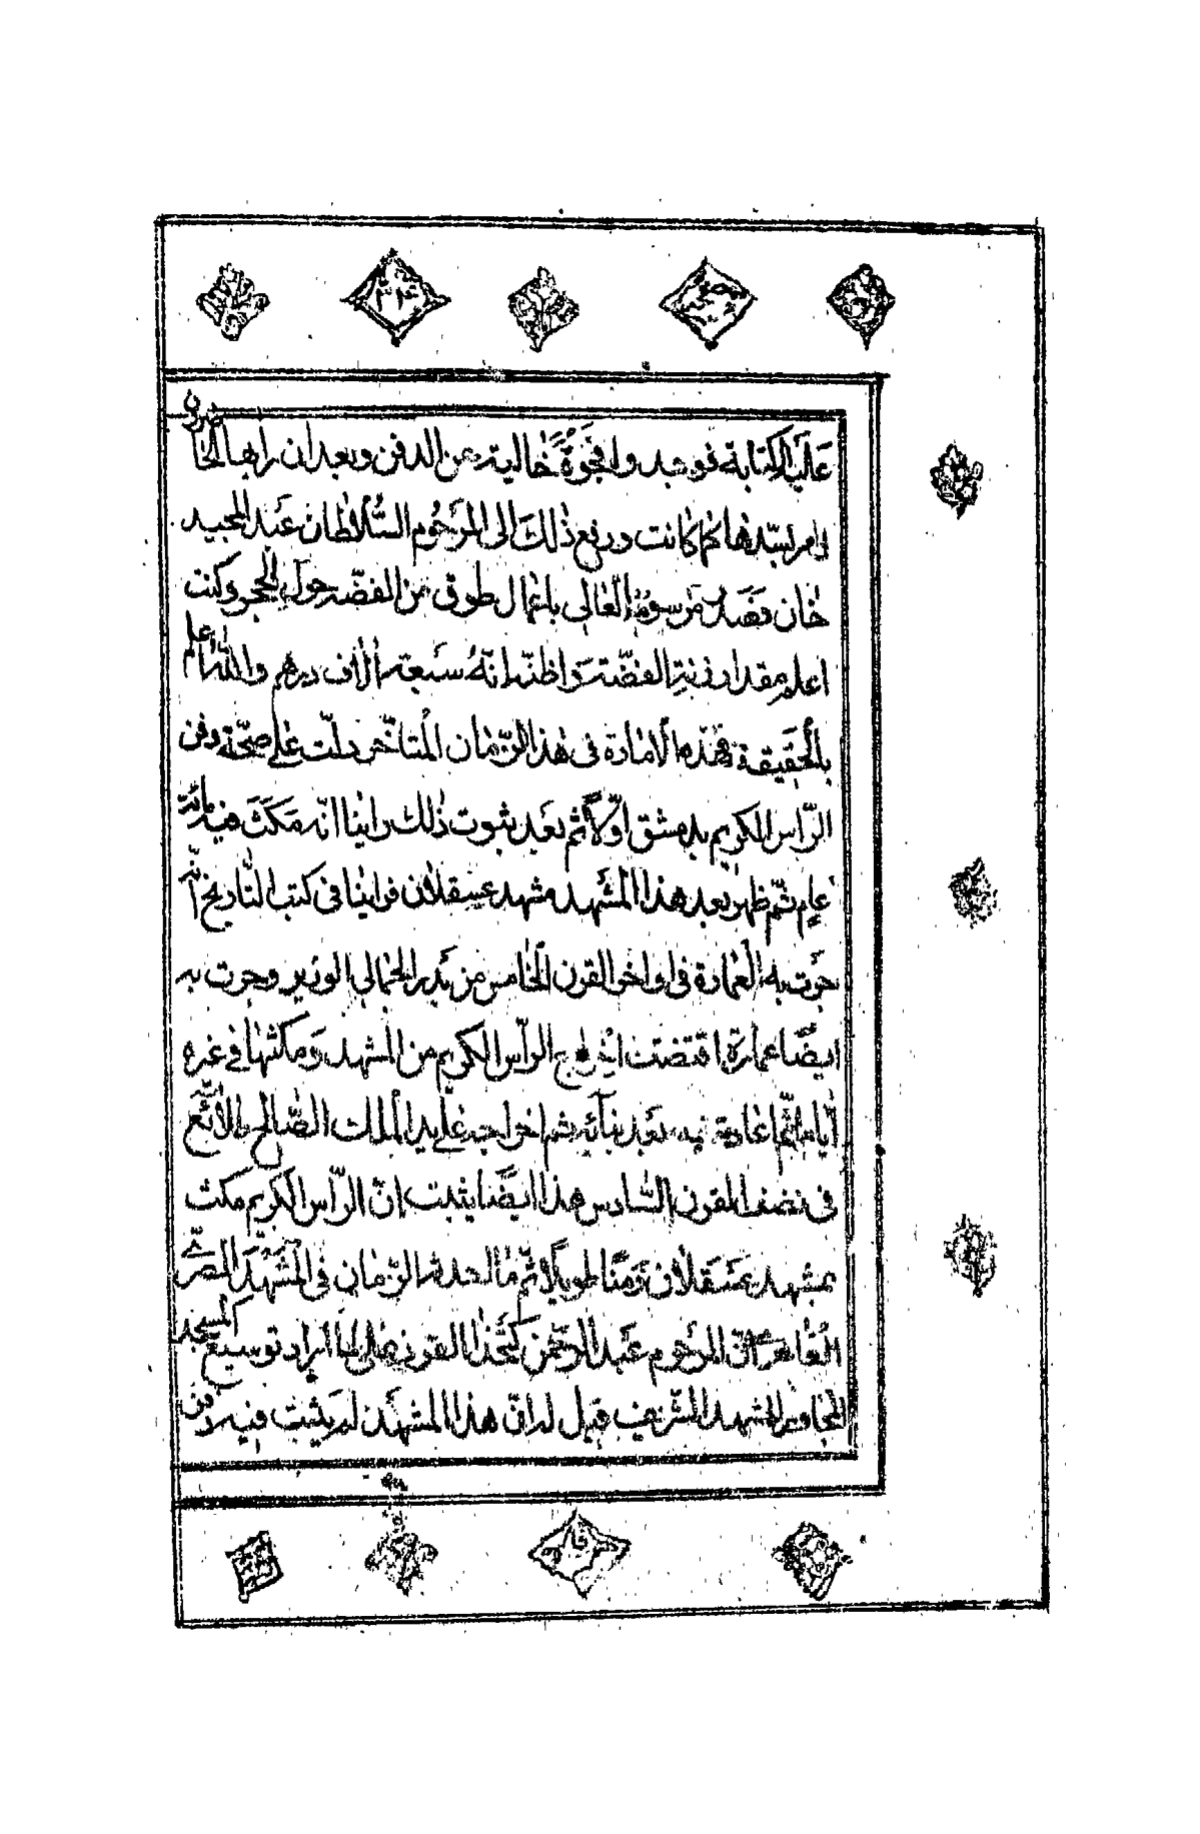 ٢٤
عليه الكتابة فوجدوا فجوة خالية من الدفن وبعد ان رأها الحاضرون
امر بسدها كما كانت ورفع ذلك الى المرحوم السلطان عبد المجيد
خان فصدر مرسومه العالى باعمال طوق من الفضة حول الحجر وكنت
اعلم مقدار زنة الفضة واظنه انه سبعة ألاف درهم والله اعلم
بالحقيقة فهذه الامارة فى هذا الزمان المتأخر دلت على صحة دفن
الرأس الكريم بدمشق اولا ثم بعد ثبوت ذلك راينا انه مكث فيه مائة
عام ثم ظهر بعد هذا المشهد مشهد عسقلان فراينا فى كتب التاريخ انه
جرت به العمارة فى اواخر القرن الخامس من بدر الجمالى الوزير وجرت به
ايضا عمارة اقتضت اخراج الرأس الكريم من المشهد ومكثها فى غيره
أياما ثم اعادته فيه بعد بنآئه ثم اخراجه على يد الملك الصالح طلائع
فى نصف القرن السادس هذا ايضا يثبت ان الرأس الكريم مكث
بمشهد عسقلان زمنا طويلا ثم الزمان فى المشهد المصرى
القاهرى ان المرحوم عبد الرحمن كتخدا لما أراد توسيع المسجد
المجاور للمشهد الشريف قيل له ان هذا المشهد لم يثبت فيه دفن